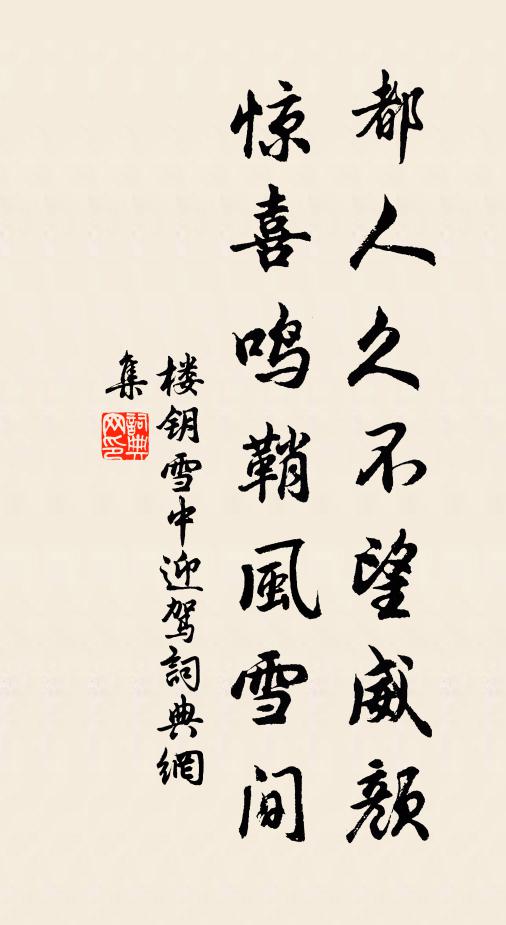 都人久不望威颜
惊喜鸣鞘風雪间
楼钥雪中迎驾詞典網
集
詞典
网印